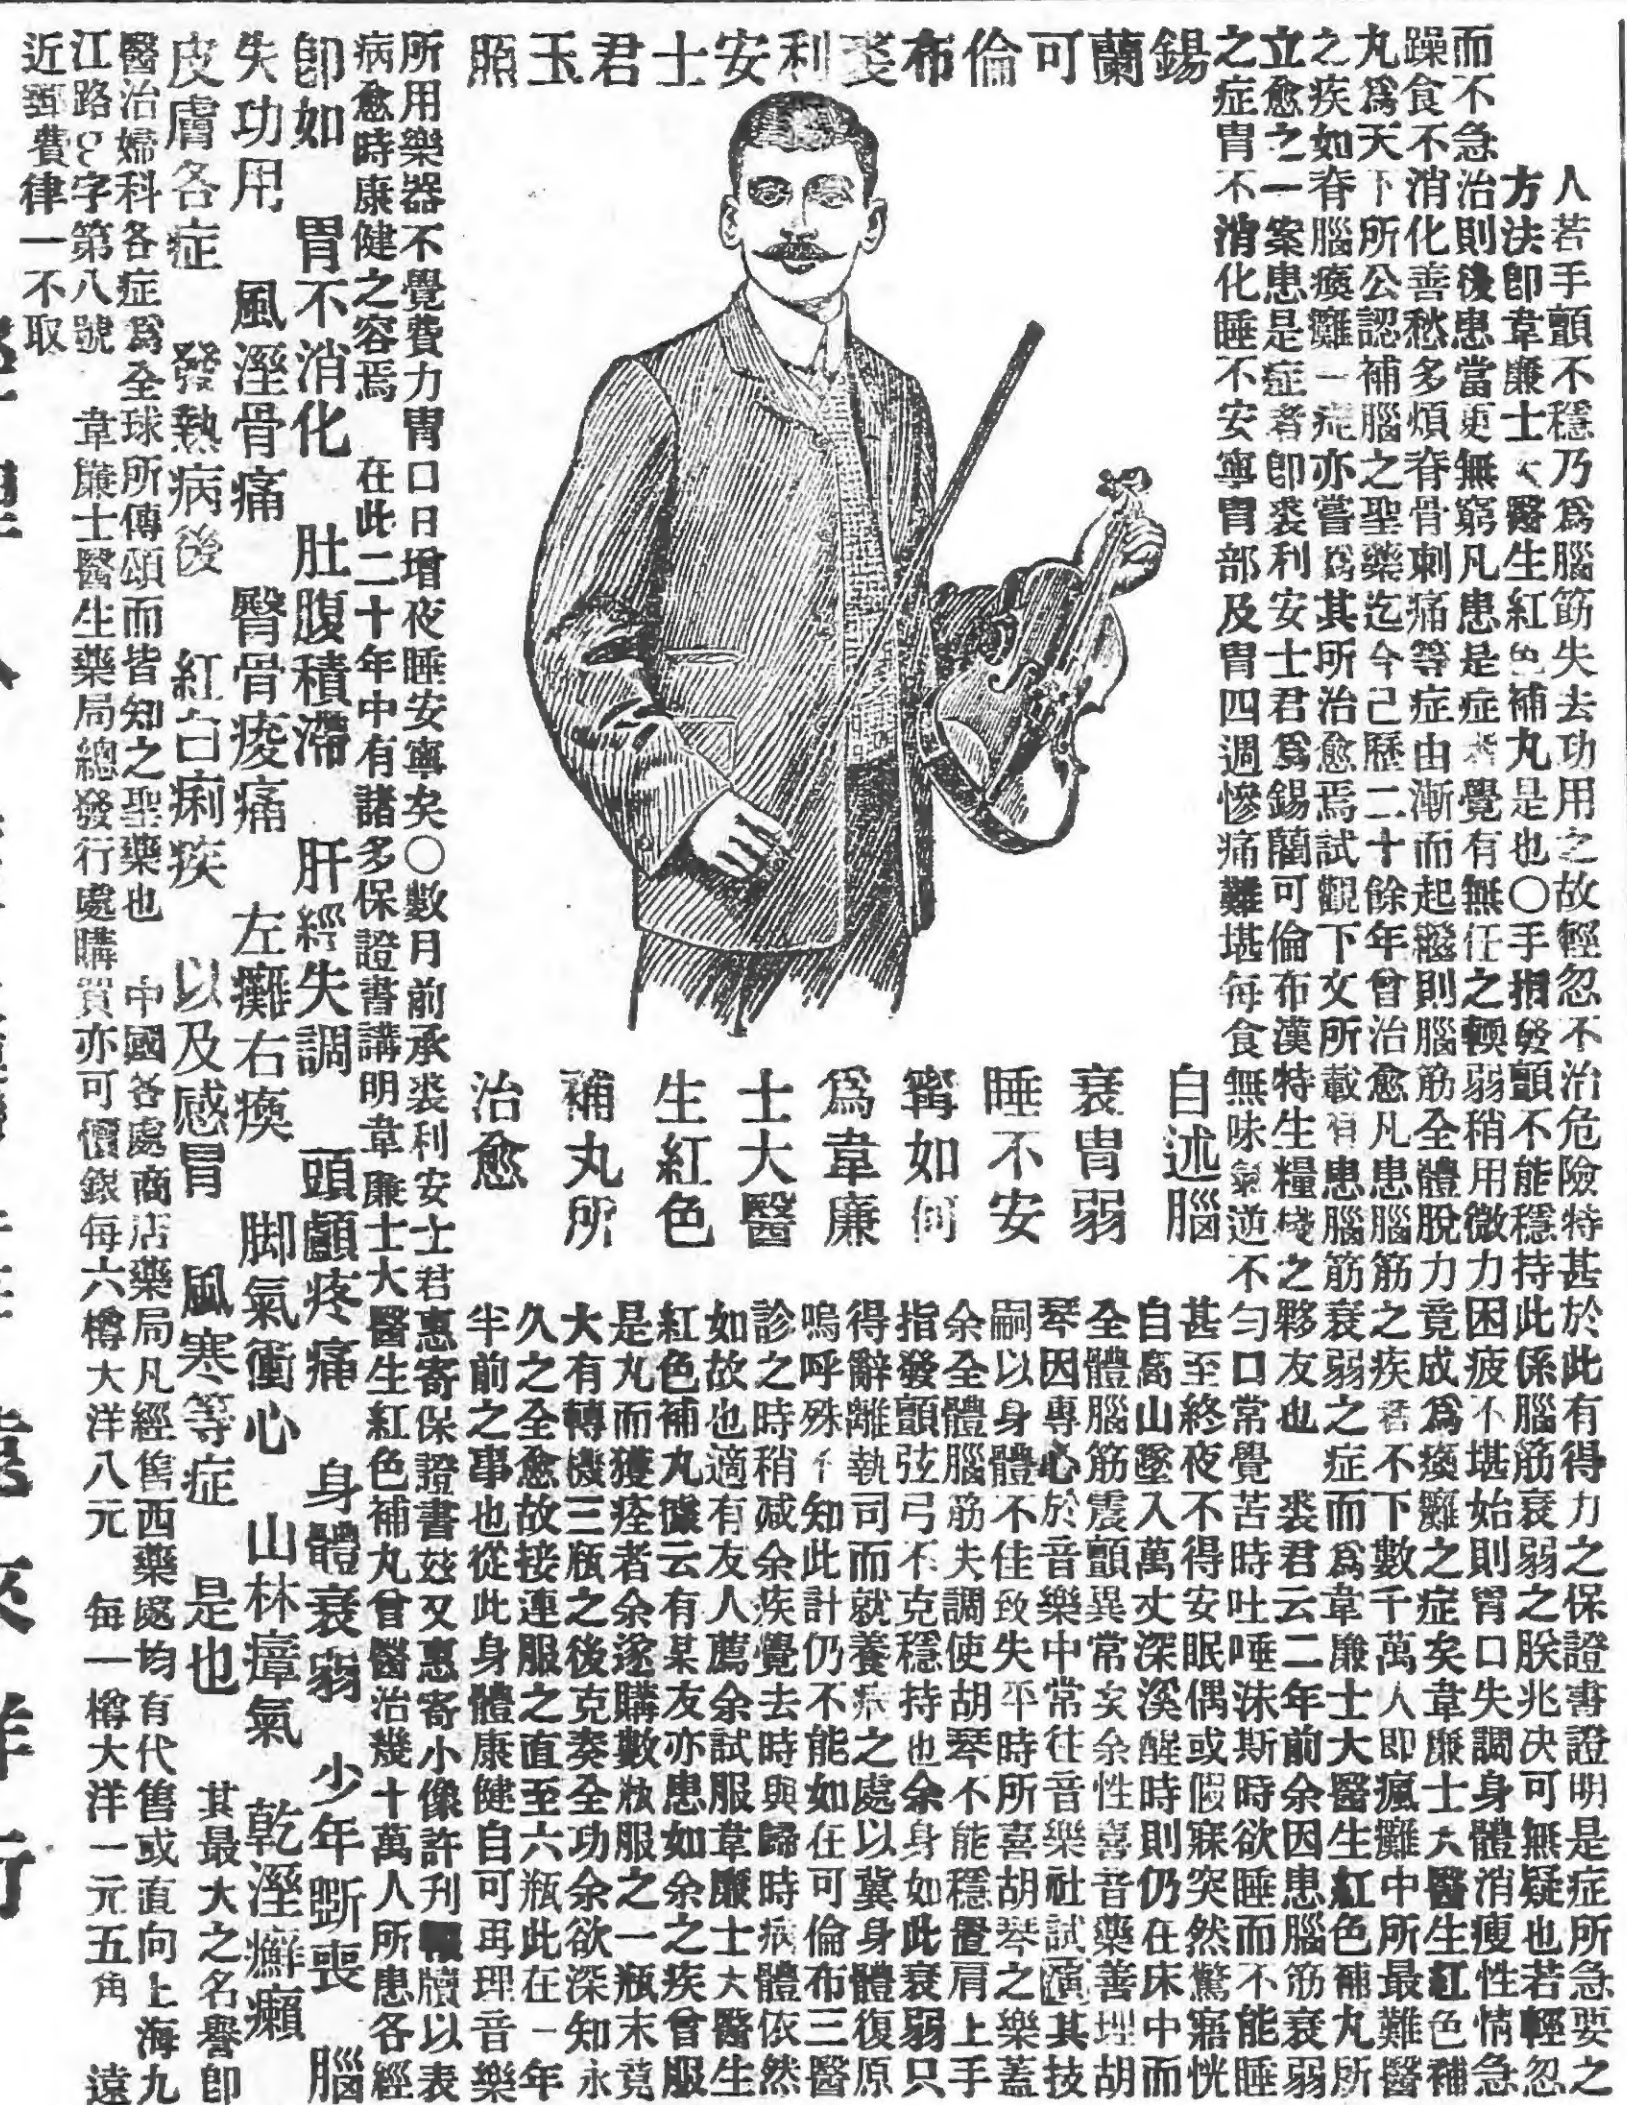 人若手顫不穩乃爲腦筋失去功用之故輕忽不治危險特甚於此有得力之保證書證明是症所急要之
方法卽韋廉士大醫生紅色補丸是也〇手指發顫不能穩持此係腦筋衰弱之朕兆决可無疑也若輕忽
而不急治則後患當更無窮凡患是症者覺有無任之輭弱稍用微力困疲不堪始則胃口失調身體消瘦性情急
躁食不消化善愁多煩脊骨刺痛等症由漸而起繼則腦筋全體脫力竟成爲瘓癱之症矣韋廉士大醫生紅色補
丸爲天下所公認補腦之聖藥迄今已歷二十餘年曾治愈凡患腦筋之疾者不下數千萬人卽瘋癱中所最難醫
之疾如脊腦瘓癱一症亦嘗爲其所治愈焉試觀下文所載有患腦筋衰弱之症而爲韋廉士大醫生紅色補丸所
立愈之一案患是症者卽裘利安士君爲錫蘭可倫布漢特生糧棧之夥友也 裘君云二年前余因患腦筋衰弱
之症胃不消化睡不安寧胃部及胃四週慘痛難堪每食無味氣逆不勻口常覺苦時吐唾沫斯時欲睡而不能睡
錫蘭可倫布裘利安士君玉照
自述腦
衰胃弱
睡不安
寗如何
爲韋廉
士大醫
生紅色
補丸所
治愈
甚至終夜不得安眠偶或假寐突然驚寤恍
自高山墜入萬丈深溪醒時則仍在床中而
全體腦筋震顫異常矣余性喜音藥善理胡
琴因專心於音樂中常往音樂社試演其技
嗣以身體不佳致失平時所喜胡琴之樂蓋
余全體腦筋失調使胡琴不能穩置肩上手
指發顫弦弓不克穩持也余身如此衰弱只
得辭離執司而就養病之處以冀身體復原
嗚呼殊不知此計仍不能如在可倫布三醫
診之時稍減余疾覺去時與歸時病體依然
如故也適有友人薦余試服韋廉士大醫生
紅色補丸據云有某友亦患如余之疾曾服
是丸而獲痊者余遂購數瓶服之一瓶末竟
大有轉機三瓶之後克奏全功余欲深知永
久之全愈故接連服之直至六瓶此在一年
半前之事也從此身體康健自可再理音樂
所用樂器不覺費力胃口日增夜睡安寧矣〇數月前承裘利安士君惠寄保證書玆又惠寄小像許刊報牘以表
病愈時康健之容焉 在此二十年中有諸多保證書講明韋廉士大醫生紅色補丸曾醫治幾十萬人所患各經
卽如 胃不消化 肚腹積滯 肝經失調 頭顱疼痛 身體衰弱 少年斲喪 腦
失功用 風溼骨痛 臀骨痠痛 左癱右瘓 脚氣衝心 山林瘴氣 乾溼癬癩
皮膚各症 發熱病後 紅白痢疾 以及感冒 風寒等症 是也 其最大之名譽卽
醫治婦科各症爲全球所傳頌而皆知之聖藥也 中國各處商店藥局凡經售西藥處均有代售或直向上海九
江路8字第八號 韋廉士醫生藥局總發行處購買亦可價銀每六樽大洋八元 每一樽大洋一元五角 遠
近郵費律一不取